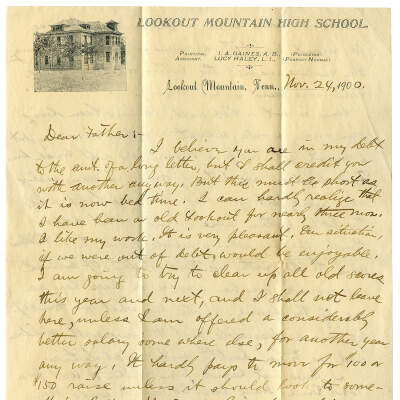 LOOKOUT MOUNTAIN HIGH SCHOOL.
PRINCIPAL, I. A. GAINES, A. B.,
ASSISTANT, LUCY HALEY, L. I.,
(PEABODY NORMAL)
Lookout Mountain, Tenn., Nov. 24, 1900.
Dear Father :-
I believe you are in my debt
to the amt. of a long letter, but I shall credit you
with another anyway. But this must be short as
it is now bed time. I can hardly realize that
I have been on old Lookout for nearly three mon.
I like my work. It is very pleasant. Our situation
if we were out of debt, would be enjoyable.
I am going to try to clear up all old scores
this year and next, and I shall not leave
here, unless I am offered a considerably
better salary some where else, for another year
any way. It hardly pays to move for 100 or
150 raise unless it should look to some-